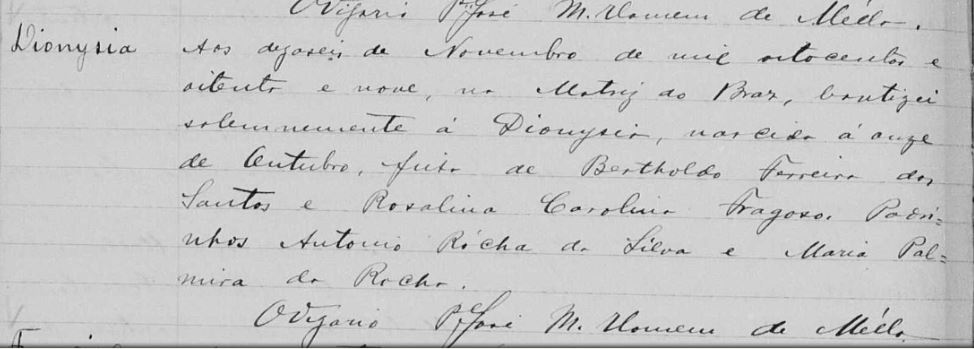 O Vigario Pe José M. Homem de Méllo.
Dionysia
Aos dezoseis de Novembro de mil oitocentos e
oitenta e nove, na Matriz do Braz, bautizei
solemnemente á Dionysia, nascida á onze
de Outubro, filha de Bertholdo Ferreira dos
Santos e Rosalina Carolina Fragoso. Padri=
nhos Antonio Rocha da Silva e Maria Pal=
mira da Rocha.
O Vigario Pe José M. Homem de Méllo.